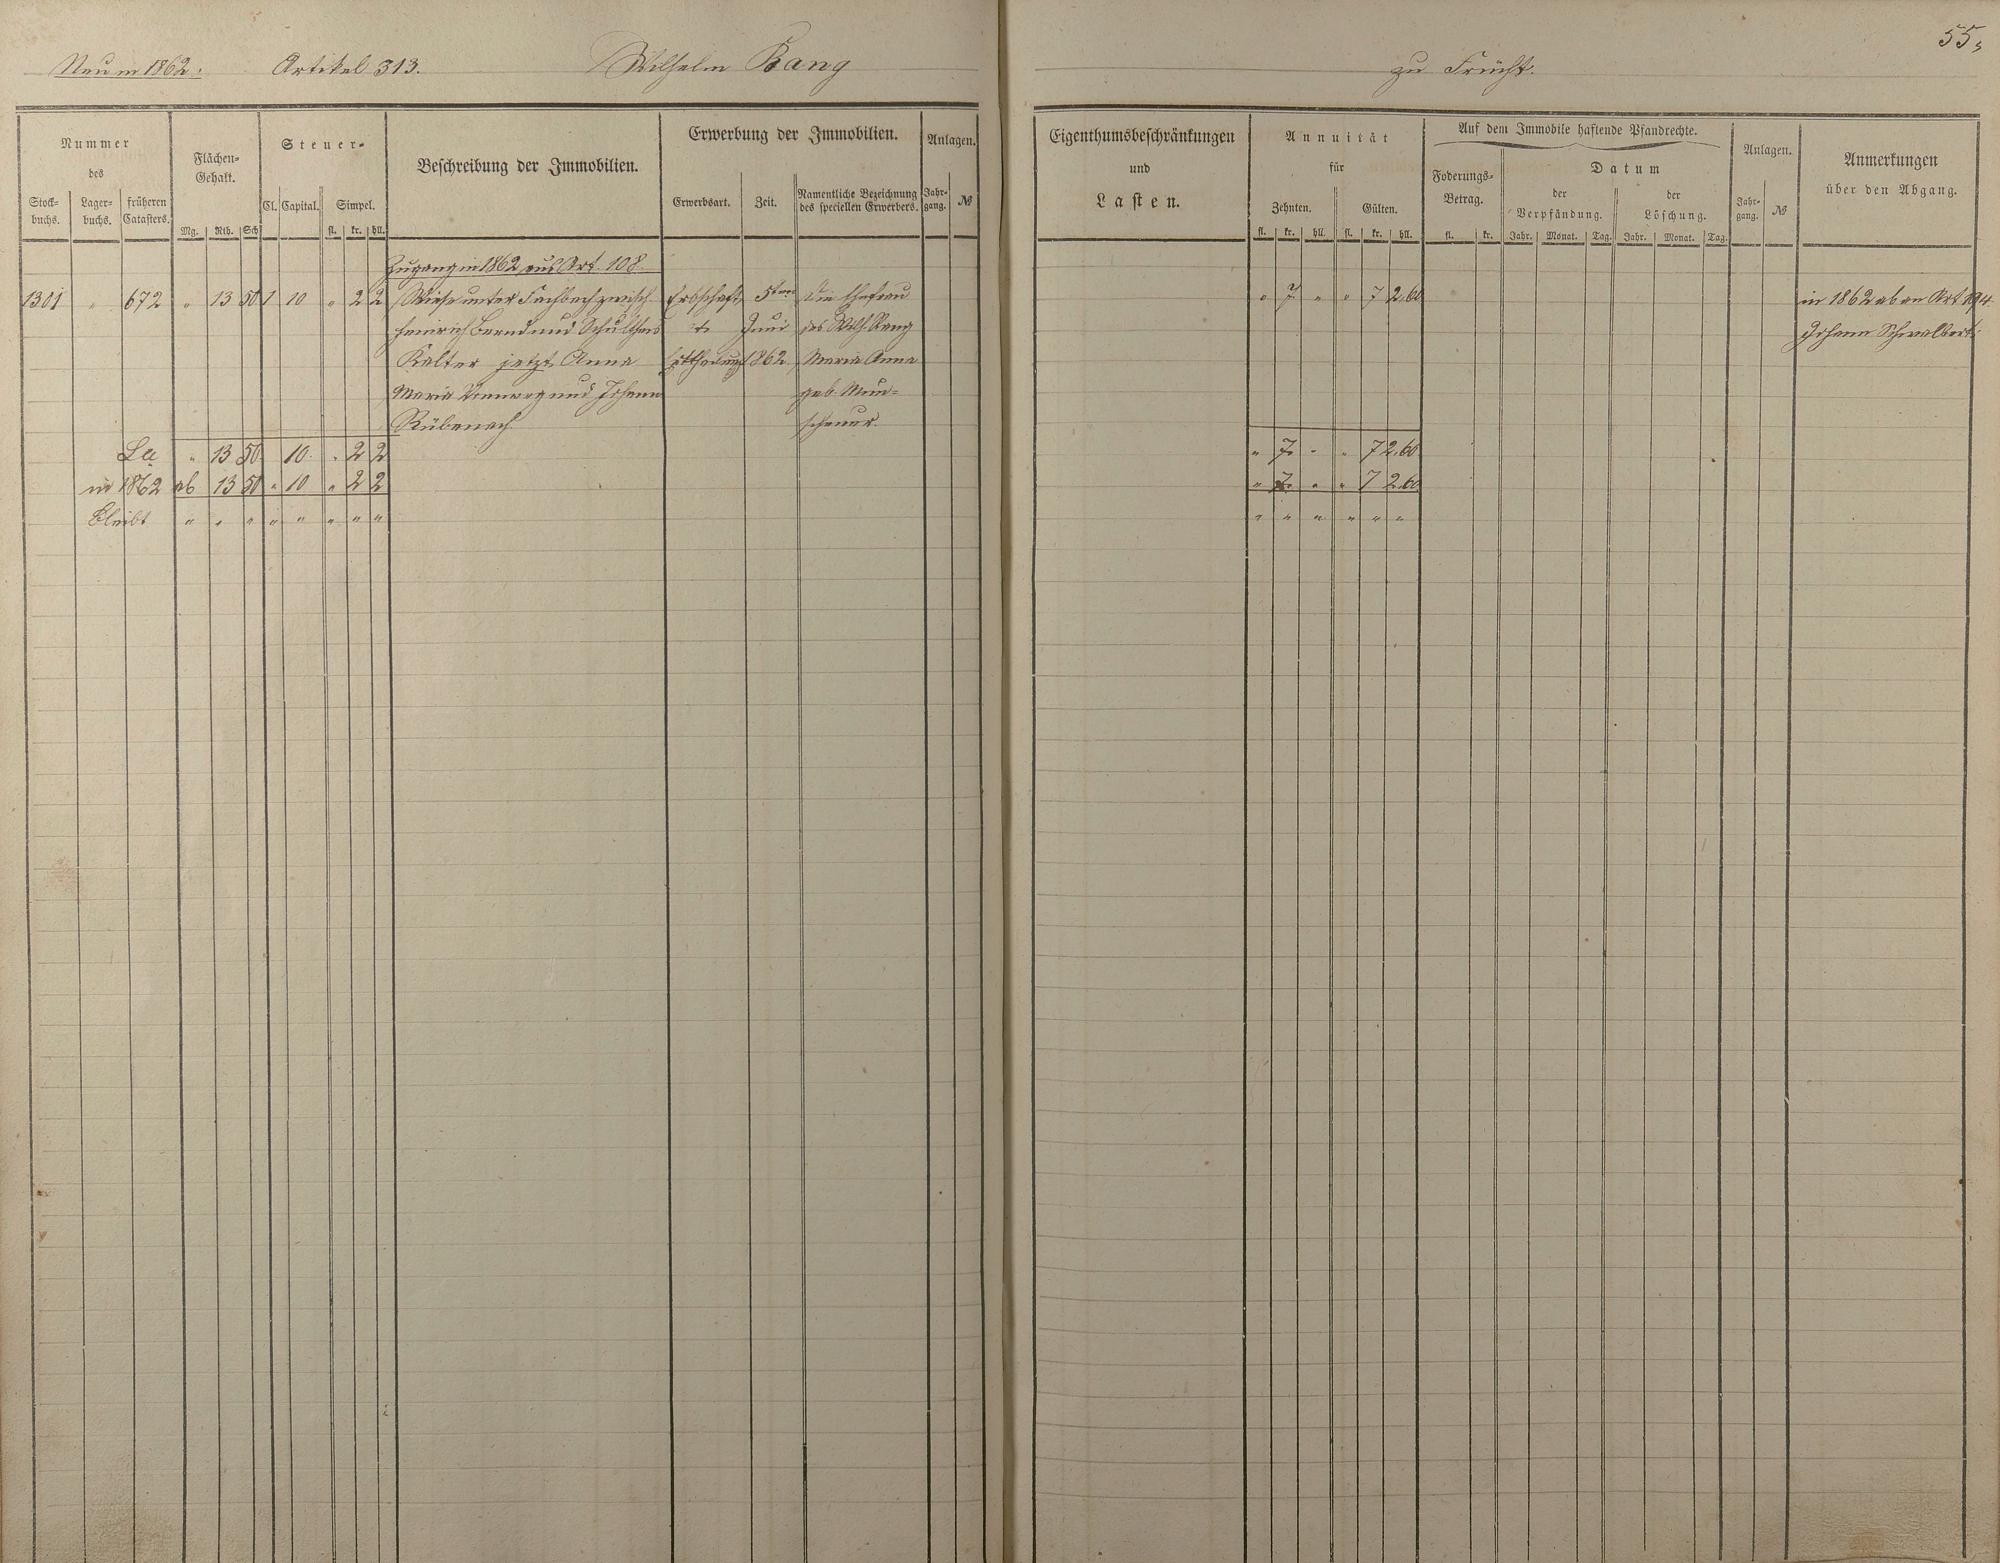 55,
Neu in 1862. Artikel 313. Wilhelm Bang zu Frücht.
Nummer des
Stockbuchs. Lagerbuchs. früheren Catasters.
Flächen-Gehalt.
Mg. Rth. Sch
Steuer-
Cl. Capital. Simpel.
fl. kr. hll.
Beschreibung der Immobilien.
Erwerbung der Immobilien.
Erwerbsart. Zeit. Namentliche Bezeichnung des speciellen Erwerbers.
Anlagen.
Jahrgang. №
Eigenthumsbeschränkungen
und
Lasten.
Annuität
für
Zehnten. Gülten.
fl. kr. hll. fl. kr. hll.
Auf dem Immobile haftende Pfandrechte.
Foderungs-Betrag.
fl. kr.
Datum
der Verpfändung. der Löschung.
Jahr. Monat. Tag. Jahr. Monat. Tag.
Anlagen.
Jahrgang. №
Anmerkungen
über den Abgang.
Zugang in 1862 aus Art. 108.
1301 " 672 " 13 50 1 10 " 2 2 Wiese unter Fachbach zwisch. Erbschaft 5ten die Ehefrau " 7 " " 7 2.60 in 1862 ab an Art 194
Heinrich Bernd und Schultheis Juni des Wilh. Bang Johann Schwalbert.
Kalter jetzt Anna 1862 Maria Anna
Maria und Johann geb. Mun-
Rübenach scheuer.
" 13 50 10 " 2 2 " 7 " " 7 2.60
in 1862 ab 13 50 " 10 " 2 2 " 7 " " 7 2.60
bleibt " " " " " " " " " " " " " "